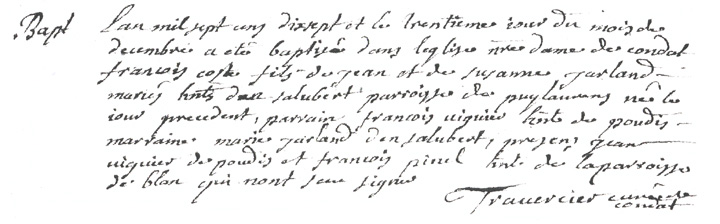 Bapt Lan mil sept cens dixsept et le trentieme iour du mois de
decembre a ete baptisé dans leglise nre dame de condat
francois coste fils de jean et de susanne jarland
mariés hnts den salubert parroisse de puylaurens née le
iour precedent, parrain francois viguier hnt de poudis
marraine marie jarland den salubert, presens jean
viguier de poudis et francois pinel hnt de la parroisse
de blan qui nont sceu signer
Travercier curé de
condat